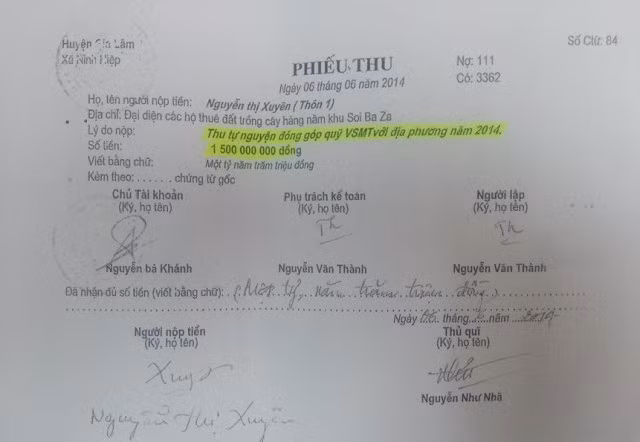 Huyện Gia Lâm
Số Ctừ: 84
Xã Ninh Hiệp
PHIẾU THU
Nợ: 111
Ngày 06 tháng 06 năm 2014
Có: 3362
Họ, tên người nộp tiền: Nguyễn thị Xuyên (Thôn 1)
Địa chỉ: Đại diện các hộ thuê đất trồng cây hàng năm khu Soi Ba Za
Lý do nộp: Thu tự nguyện đóng góp quỹ VSMTvới địa phương năm 2014.
Số tiền: 1 500 000 000 đồng
Viết bằng chữ: Một tỷ năm trăm triệu đồng
Kèm theo: . . . . . . . chứng từ gốc
Chủ Tài khoản Phụ trách kế toán Người lập
(Ký, họ tên) (Ký, họ tên) (Ký, họ tên)
Th Th
Nguyễn bá Khánh Nguyễn Văn Thành Nguyễn Văn Thành
Đã nhận đủ số tiền (viết bằng chữ): (Một tỷ, năm trăm triệu đồng)
Ngày 06 tháng năm 2014
Người nộp tiền Thủ quĩ
(Ký, họ tên) (Ký, họ tên)
Xuyên
Nguyễn Như Nhã
Nguyễn Thị Xuyên